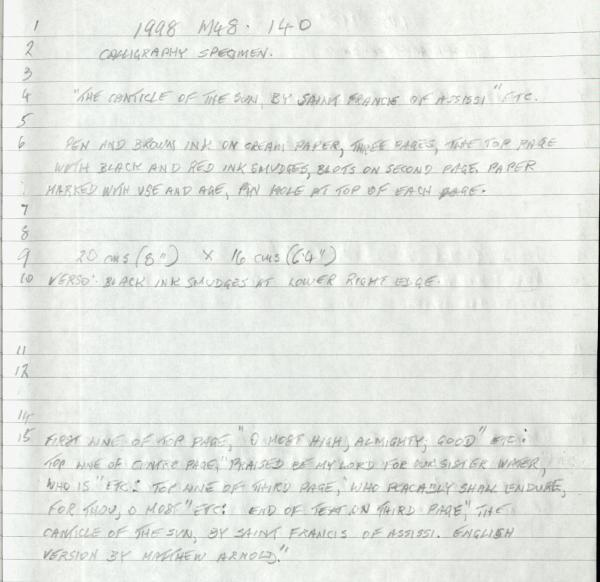 1 1998 M48. 140
2 CALLIGRAPHY SPECIMEN.
3
4 "THE CANTICLE OF THE SUN, BY SAINT FRANCIS OF ASSISSI" ETC.
5
6 PEN AND BROWN INK ON CREAM PAPER, THREE PAGES, THE TOP PAGE
WITH BLACK AND RED INK SMUDGES, BLOTS ON SECOND PAGE. PAPER
MARKED WITH USE AND AGE, PIN HOLE AT TOP OF EACH PAGE.
7
8
9 20 cms (8") X 16 cms (6.4")
10 VERSO: BLACK INK SMUDGES AT LOWER RIGHT EDGE.
11
12
14
15 FIRST LINE OF TOP PAGE, "O MOST HIGH, ALMIGHTY, GOOD" ETC:
TOP LINE OF CENTRE PAGE, "PRAISED BE MY LORD FOR OUR SISTER WATER,
WHO IS" ETC: TOP LINE OF THIRD PAGE, "WHO PEACABLY SHALL ENDURE,
FOR THOU, O MOST" ETC: END OF TEXT ON THIRD PAGE, "THE
CANTICLE OF THE SUN, BY SAINT FRANCIS OF ASSISSI. ENGLISH
VERSION BY MATTHEW ARNOLD."